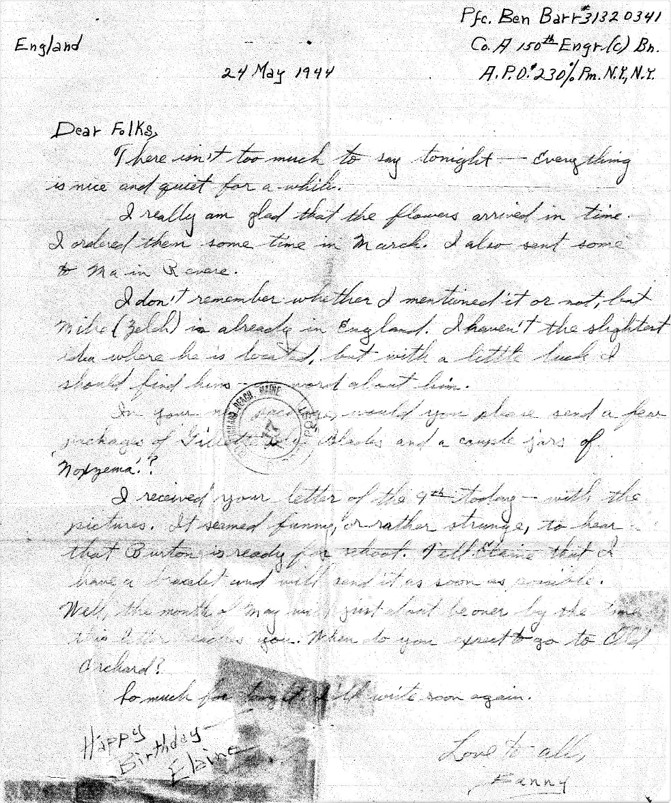 Pfc. Ben Barr #31320341
England
Co. A 150th Engr. (c) Bn.
24 May 1944
A.P.O. #230 % Pm. N.Y., N.Y.
Dear Folks,
There isn't too much to say tonight — Everything
is nice and quiet for a while.
I really am glad that the flowers arrived in time.
I ordered them some time in March. I also sent some
to Ma in Revere.
I don't remember whether I mentioned it or not, but
Mike (Zelch) is already in England. I haven't the slightest
idea where he is located, but with a little luck I
should find him — word about him.
In your would you please send a few
packages of Blades and a couple jars of
Noxzema!?
I received your letter of the 9th today — with the
pictures. It seemed funny, or rather strange, to hear
that Burton is ready for school. Tell Elaine that I
have a bracelet and will send it as soon as possible.
Well, the month of May will just about be over by the time
this letter reaches you. When do you expect to go to Old
Orchard?
So much for will write soon again.
Happy
Birthday —
Elaine
Love to all,
BEACH, MAINE
POST